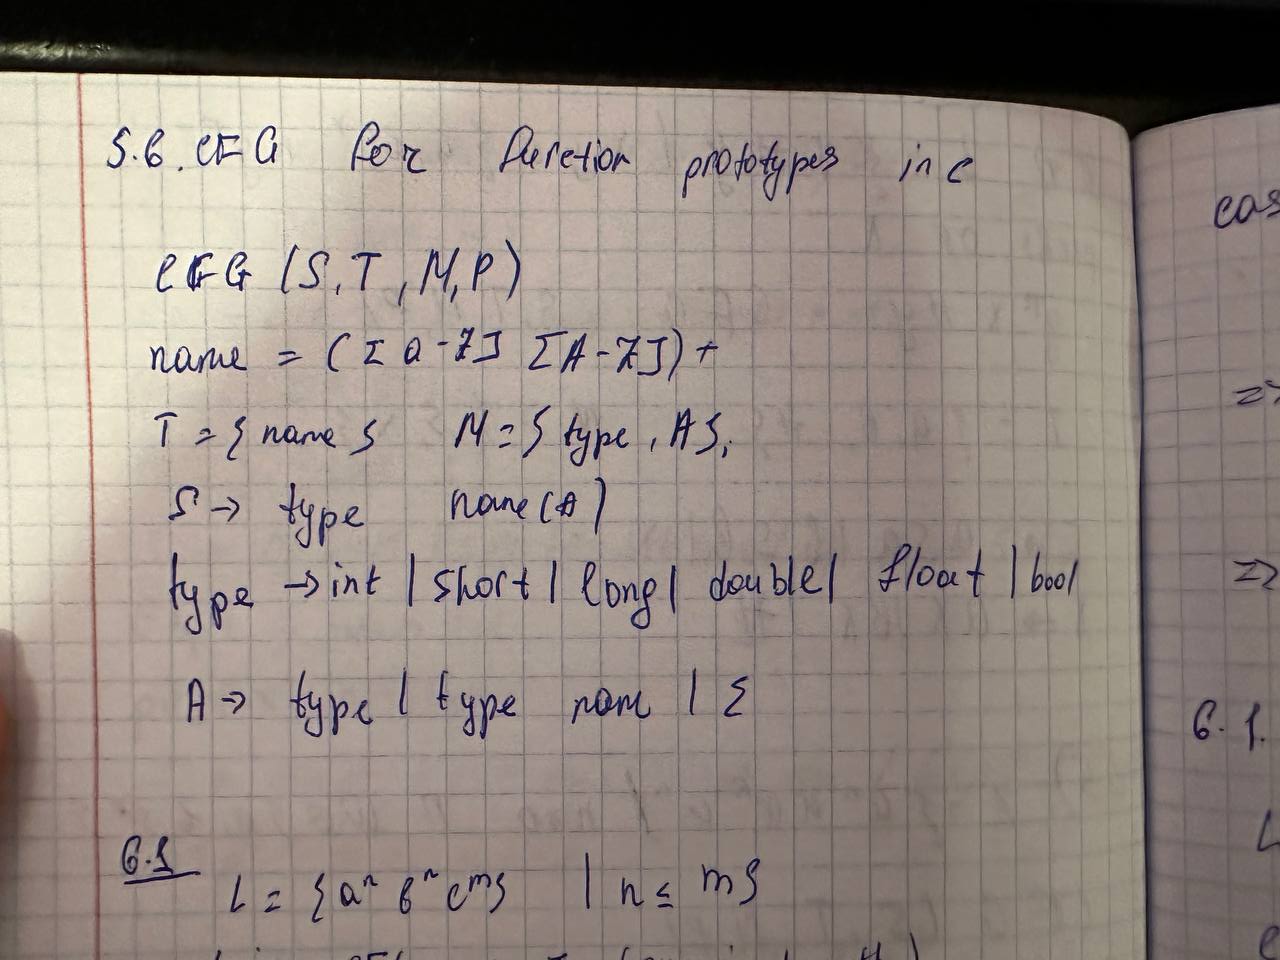 5.6. CFG for function prototypes in c
CFG (S, T, N, P)
name = ([a-z] [A-Z])+
T = { name } N = { type, A },
S → type name(A)
type → int | short | long | double | float | bool
A → type | type nam | ε
6.1
L = {aⁿ bⁿ cᵐ} | n ≤ m}
cas
=>
=>
6. 1.
L